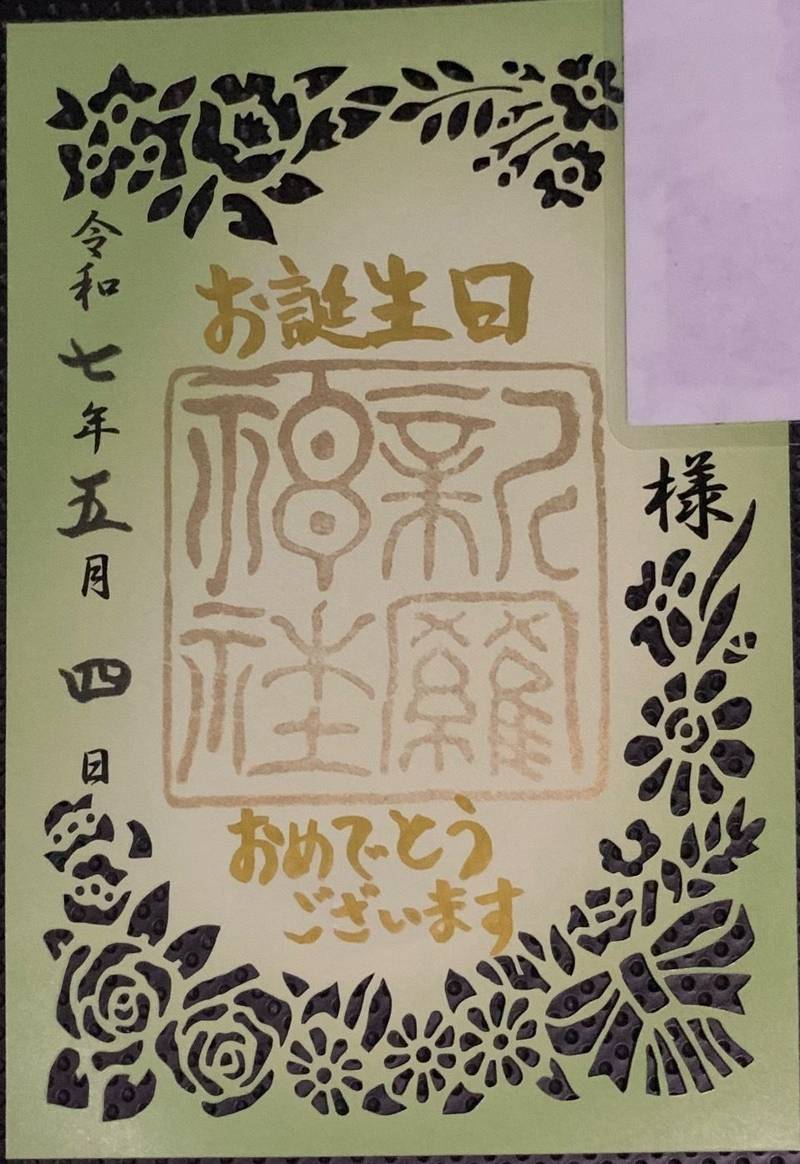 様
お誕生日
新羅
神社
おめでとう
ございます
令和七年五月四日